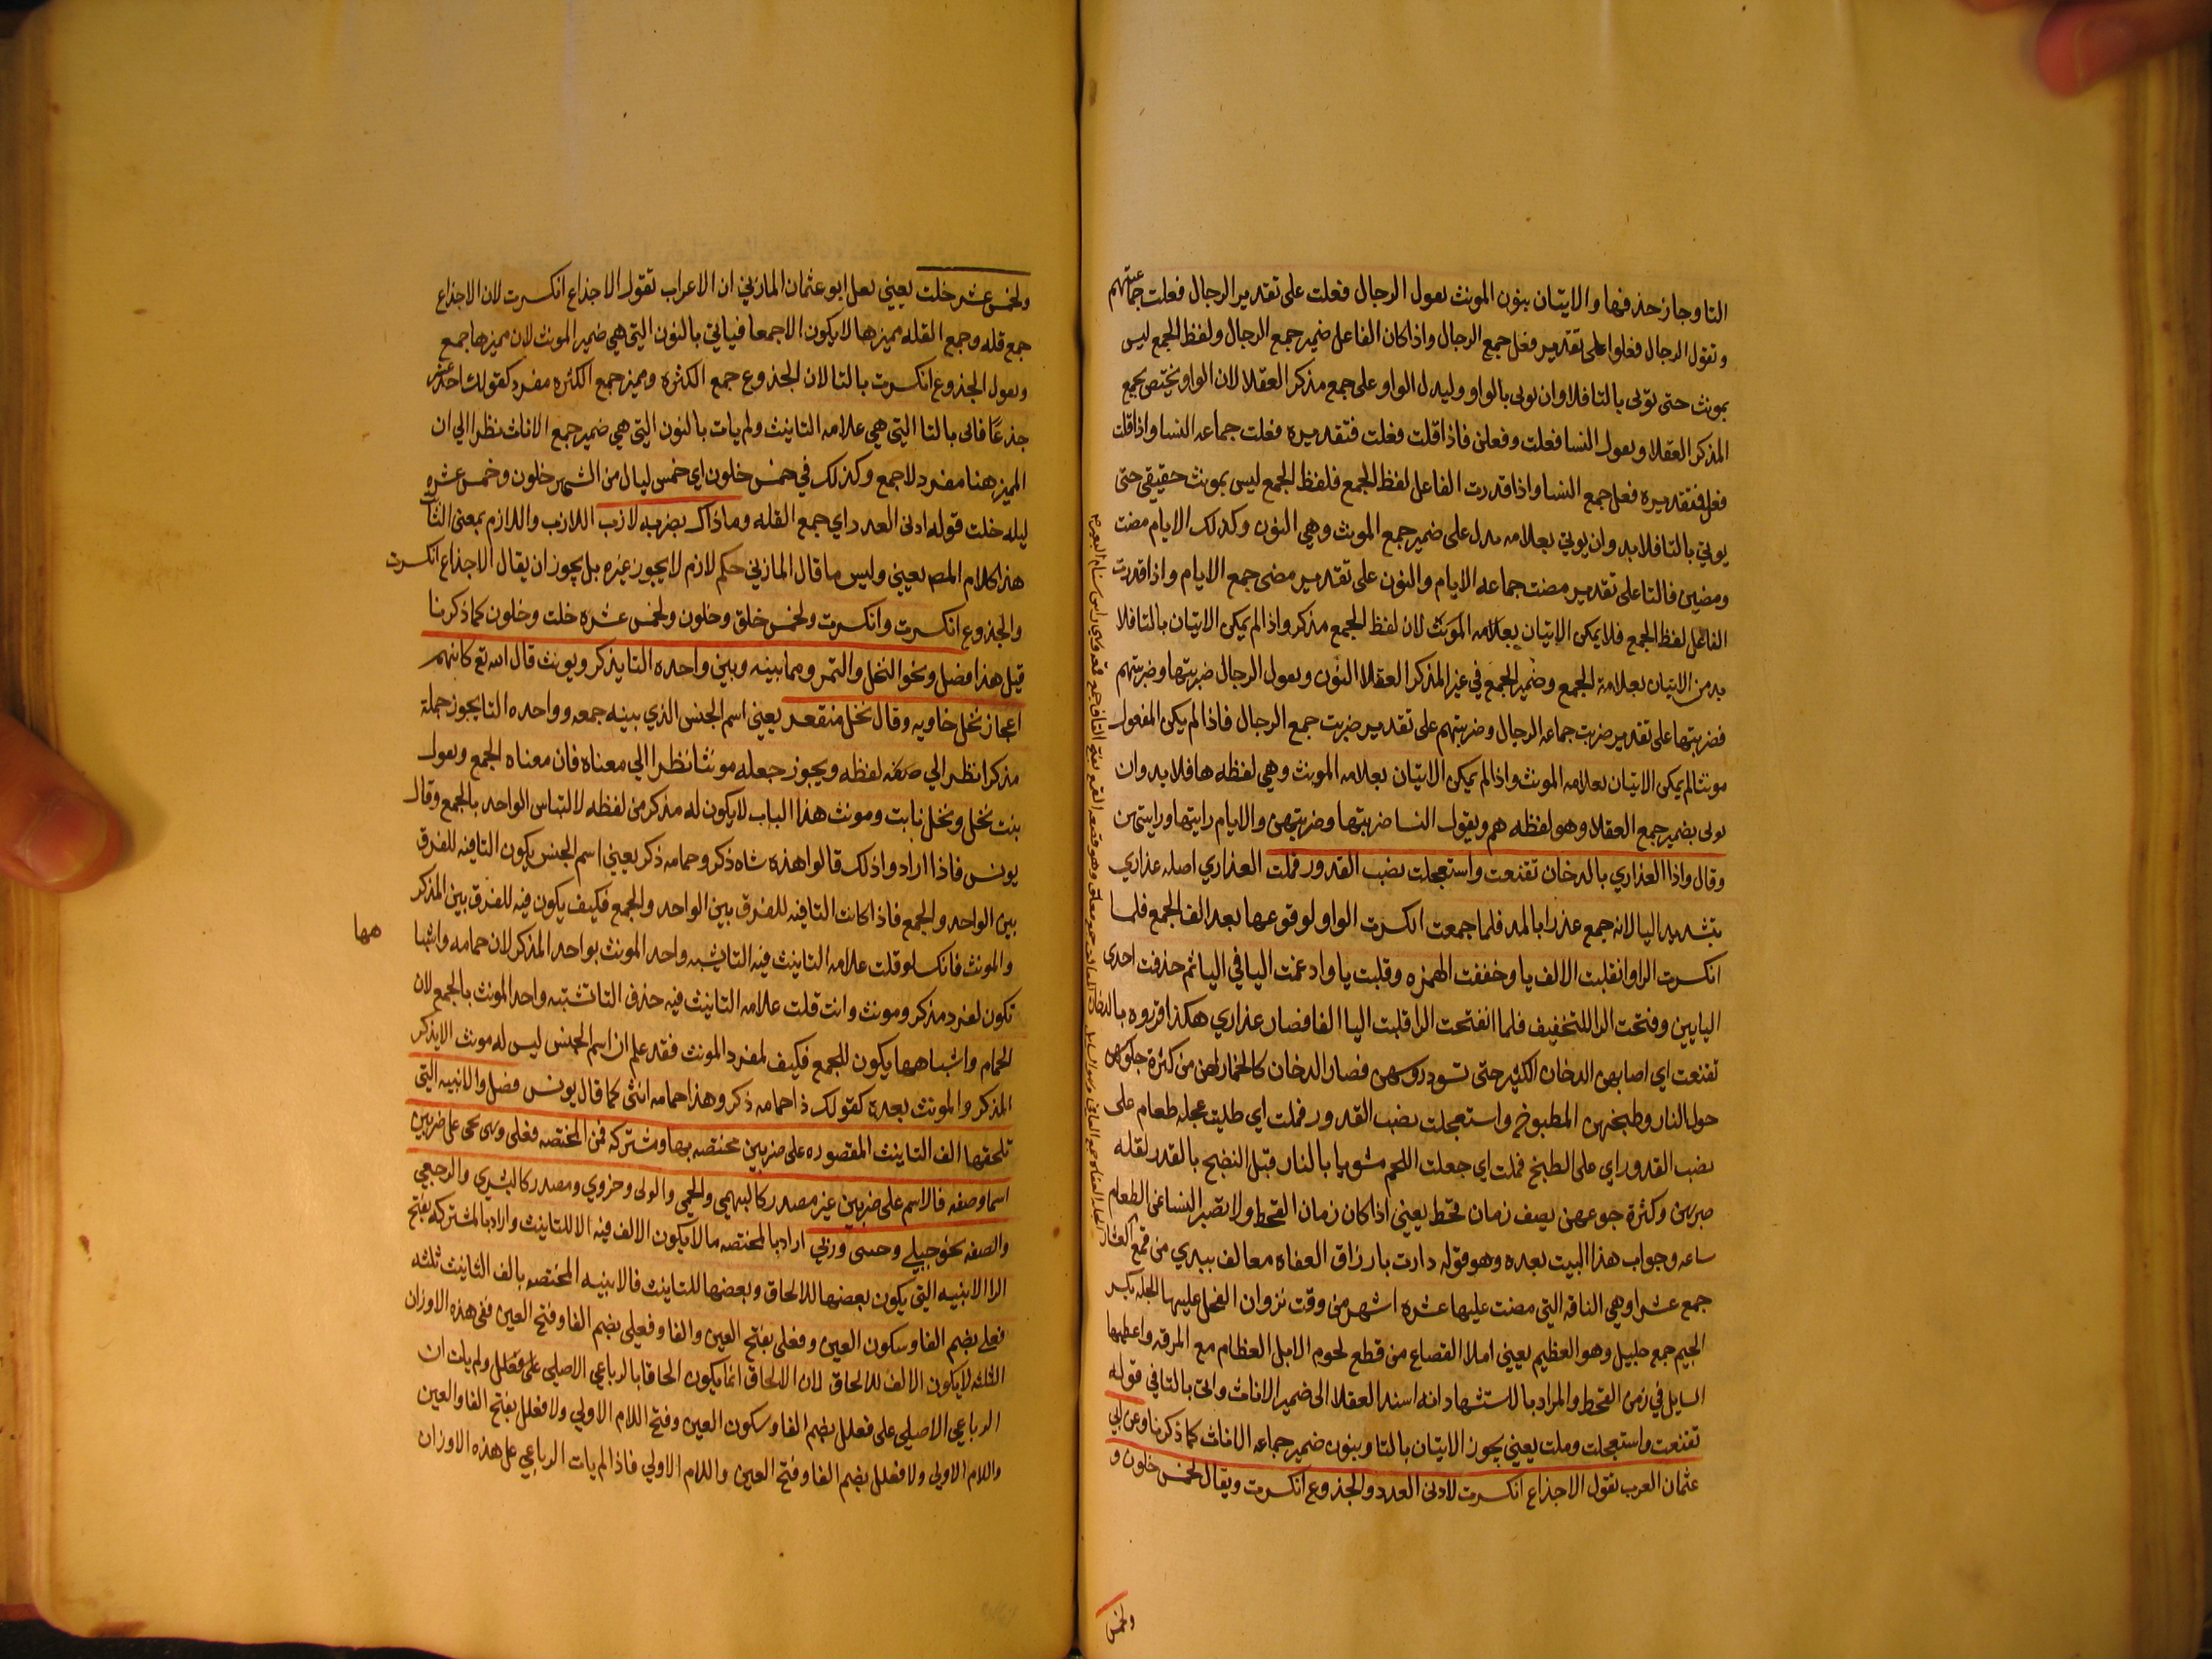 التا وجاز حذفها والايتان بنون المونث يعول الرجال فعلت على تقدير الرجال فعلت جماعتهم
وتقول الرجال فعلوا على تقدير فعل جمع الرجال واذا كان الفاعل ضمير جمع الرجال ولفظ الجمع ليس
بمونث حتى يوتى بالتا فلا وان يوتى بالواو وليدل الواو على جمع مذكر العقلا لان الواو يختص بجمع
المذكر العقلا ويعول النسا فعلت وفعلن فاذا قلت فعلت فتقديره فعلت جماعه النسا واذا قلت
فعلن فتقديره فعل جمع النسا واذا قدرت الفاعل لفظ الجمع فلفظ الجمع ليس بمونث حقيقي حتى
يوتي بالتا فلابد وان يوتي بعلامه يدل على ضمير جمع المونث وهي النون وكذلك الايام مضت
ومضين فالتا على تقدير مضت جماعه الايام والنون على تقدير مضى جمع الايام واذا قدرت
الفاعل لفظ الجمع فلا يمكن الايتان بعلامه المونث لان لفظ الجمع مذكر واذا لم يمكن الايتان بالتا فلا
بد من الايتان بعلامة الجمع وضمير الجمع في غير المذكر العقلا النون ويعول الرجال ضربتها وضربتهم
فضربتها على تقدير ضربت جماعه الرجال وضربتهم على تقدير ضربت جمع الرجال فاذا لم يكن المفعول
مونثا لم يمكن الايتان بعلامه المونث واذا لم يمكن الايتان بعلامه المونث وهي لفظه ها فلابد وان
يوتى بضمير جمع العقلا وهو لفظه هم ويقول النسا ضربتها وضربتهن والايام رايتها ورايتهن
وقال واذا العذاري بالدخان تقنعت واستعجلت نصب القدور فملت العذاري اصله عذاري
بتشديد اليا لانه جمع عذرا بالمد فلما جمعت انكسرت الواو لوقوعها بعد الف الجمع فلما
انكسرت الراو انقلبت الالف يا وخففت الهمزه وقلبت يا وادغمت اليا في اليا ثم حذفت احدى
اليايين وفتحت الرا للتخفيف فلما انفتحت الرا قلبت اليا الفا فصار عذاري هكذا قروه بالدخان
تقنعت اي اصابهن الدخان الكثير حتى تسود روسهن فصار الدخان كالخمار لهن من كثرة جلوسهن
حول النار وطبخهن المطبوخ واستعجلت نصب القدور فملت اي طلبت عجله طعام على
نصب القدور اي على الطبخ فملت اي جعلت اللحم مشويا بالنار قبل النضج بالقدر لقله
صبرهن وكثرة جوعهن يصف زمان قحط يعني اذا كان زمان القحط ولا تصبر النسا عن الطعام
ساعه وجواب هذا البيت بعده وهو قوله دارت بارزاق العفاه مغالق بيدي من قمع العشار
جمع عشرا وهي الناقه التي مضت عليها عشره اشهر من وقت نزوان الفحل عليها الجله بكسر
الجيم جمع جليل وهو العظيم يعني املا القصاع من قطع لحوم الابل العظام مع المرقه واعطيها
السايل في زمن القحط والمراد بالاستشهاد انه اسند العقلا الى ضمير الاناث واتى بالتا في قوله
تقنعت واستعجلت وملت يعني يجوز الايتان بالتا وبنون ضمير جماعه الاناث كما ذكرنا وعن ابي
عثمان العرب تقول الاجذاع انكسرت لادنى العدد والجذوع انكسرت ويقال لخمس خلون و
ولخمس
ولخمس عشر خلت يعني نعل ابو عثمان المازني ان الاعراب تقول الاجذاع انكسرت لان الاجذاع
جمع قله وجمع القله مميزها لا يكون الا جمعا فياتي بالنون التي هي ضمير المونث لان مميزها جمع
ويعول الجذوع انكسرت بالتا لان الجذوع جمع الكثره ومميز جمع الكثره مفرد كقولك احد عشر
جذعا فاتى بالتا التي هي علامه التانيث ولم يات بالنون التي هي ضمير جمع الاناث نظرا الي ان
المميز هنا مفرد لا جمع وكذلك في خمس خلون اي خمس ليال من الشهر خلون وخمس عشره
ليله خلت قوله ادنى العدد اي جمع القله وماذاك بضربه لازب اللازب واللازم بمعنى الثابت
هذا كلام المص يعيني وليس ما قال المازني حكم لازم لا يجوز غيره بل يجوز ان يقال الاجذاع انكسرت
والجذوع انكسرت وانكسرت ولخمس خلق وخلون ولخمس عشره خلت وخلون كما ذكرنا
قبل هذا فصل ونحو النخل والتمر ومما بينه وبين واحده التا يذكر ويونث قال الله تع كانهم
اعجاز نخل خاويه وقال نخل منقعر يعني اسم الجنس الذي بينه جمعه وواحده التا يجوز جملة
مذكرا نظرا الي لفظه ويجوز جعله مونثا نظرا الي معناه فان معناه الجمع ويعول
بنت نخل ونخل نابت ومونث هذا الباب لا يكون له مذكر من لفظه لالتباس الواحد بالجمع وقال
يونس فاذا ارادوا ذلك قالوا هذه شاه ذكر وحمامه ذكر يعني اسم الجنس يكون التا فيه للفرق
بين الواحد والجمع فاذا كانت التا فيه للفرق بين الواحد والجمع فكيف يكون فيه للفرق بين المذكر
والمونث فانك لو قلت علامه التانيث فيه التا يشبه واحد المونث بواحد المذكر لان حمامه واشبا
هها
تكون لمفرد مذكر ومونث وانت قلت علامه التانيث فيه حذف التا تشتبه واحد المونث بالجمع لان
الحمام واشباهها يكون للجمع فكيف لمفرد المونث فقد علم ان اسم الجنس ليس له مونث الا يذكر
المذكر والمونث بعده كقولك ذا حمامه ذكر وهذا حمامه انثى كما قال يونس فصل والابنيه التي
تلحقها الف التانيث المقصوره على ضربين مختصه بها ومشتركه فمن المختصه فعلى وهي تجى على ضربين
اسما وصفه فالاسم على ضربين غير مصدر كالبهمي والحمي والرويا وحزوي ومصدر كالبشري والرجعي
والصفه نحو حبيلى وخنثى وربي اراد بالمختصه ما لا يكون الالف فيه الا للتانيث واراد بالمشتركه بفتح
الرا الابنيه التي يكون بعضها للالحاق وبعضها للتانيث فالابنيه المختصه بالف التانيث ثلثه
فعلى بضم الفا وسكون العين وفعلى بفتح العين والفا وفعلى بضم الفا وفتح العين ففي هذه الاوزان
الثلثه لا يكون الالف للالحاق لان الالحاق انما يكون الحاقا بالرباعي الاصلي على فعلل ولم يات ان
الرباعي الاصلي على فعلل بضم الفا وسكون العين وفتح اللام الاولي ولا فعلل بفتح الفا والعين
واللام الاولي ولا فعلل بضم الفا وفتح العين واللام الاولي فاذا لم يات الرباعي على هذه الاوزان